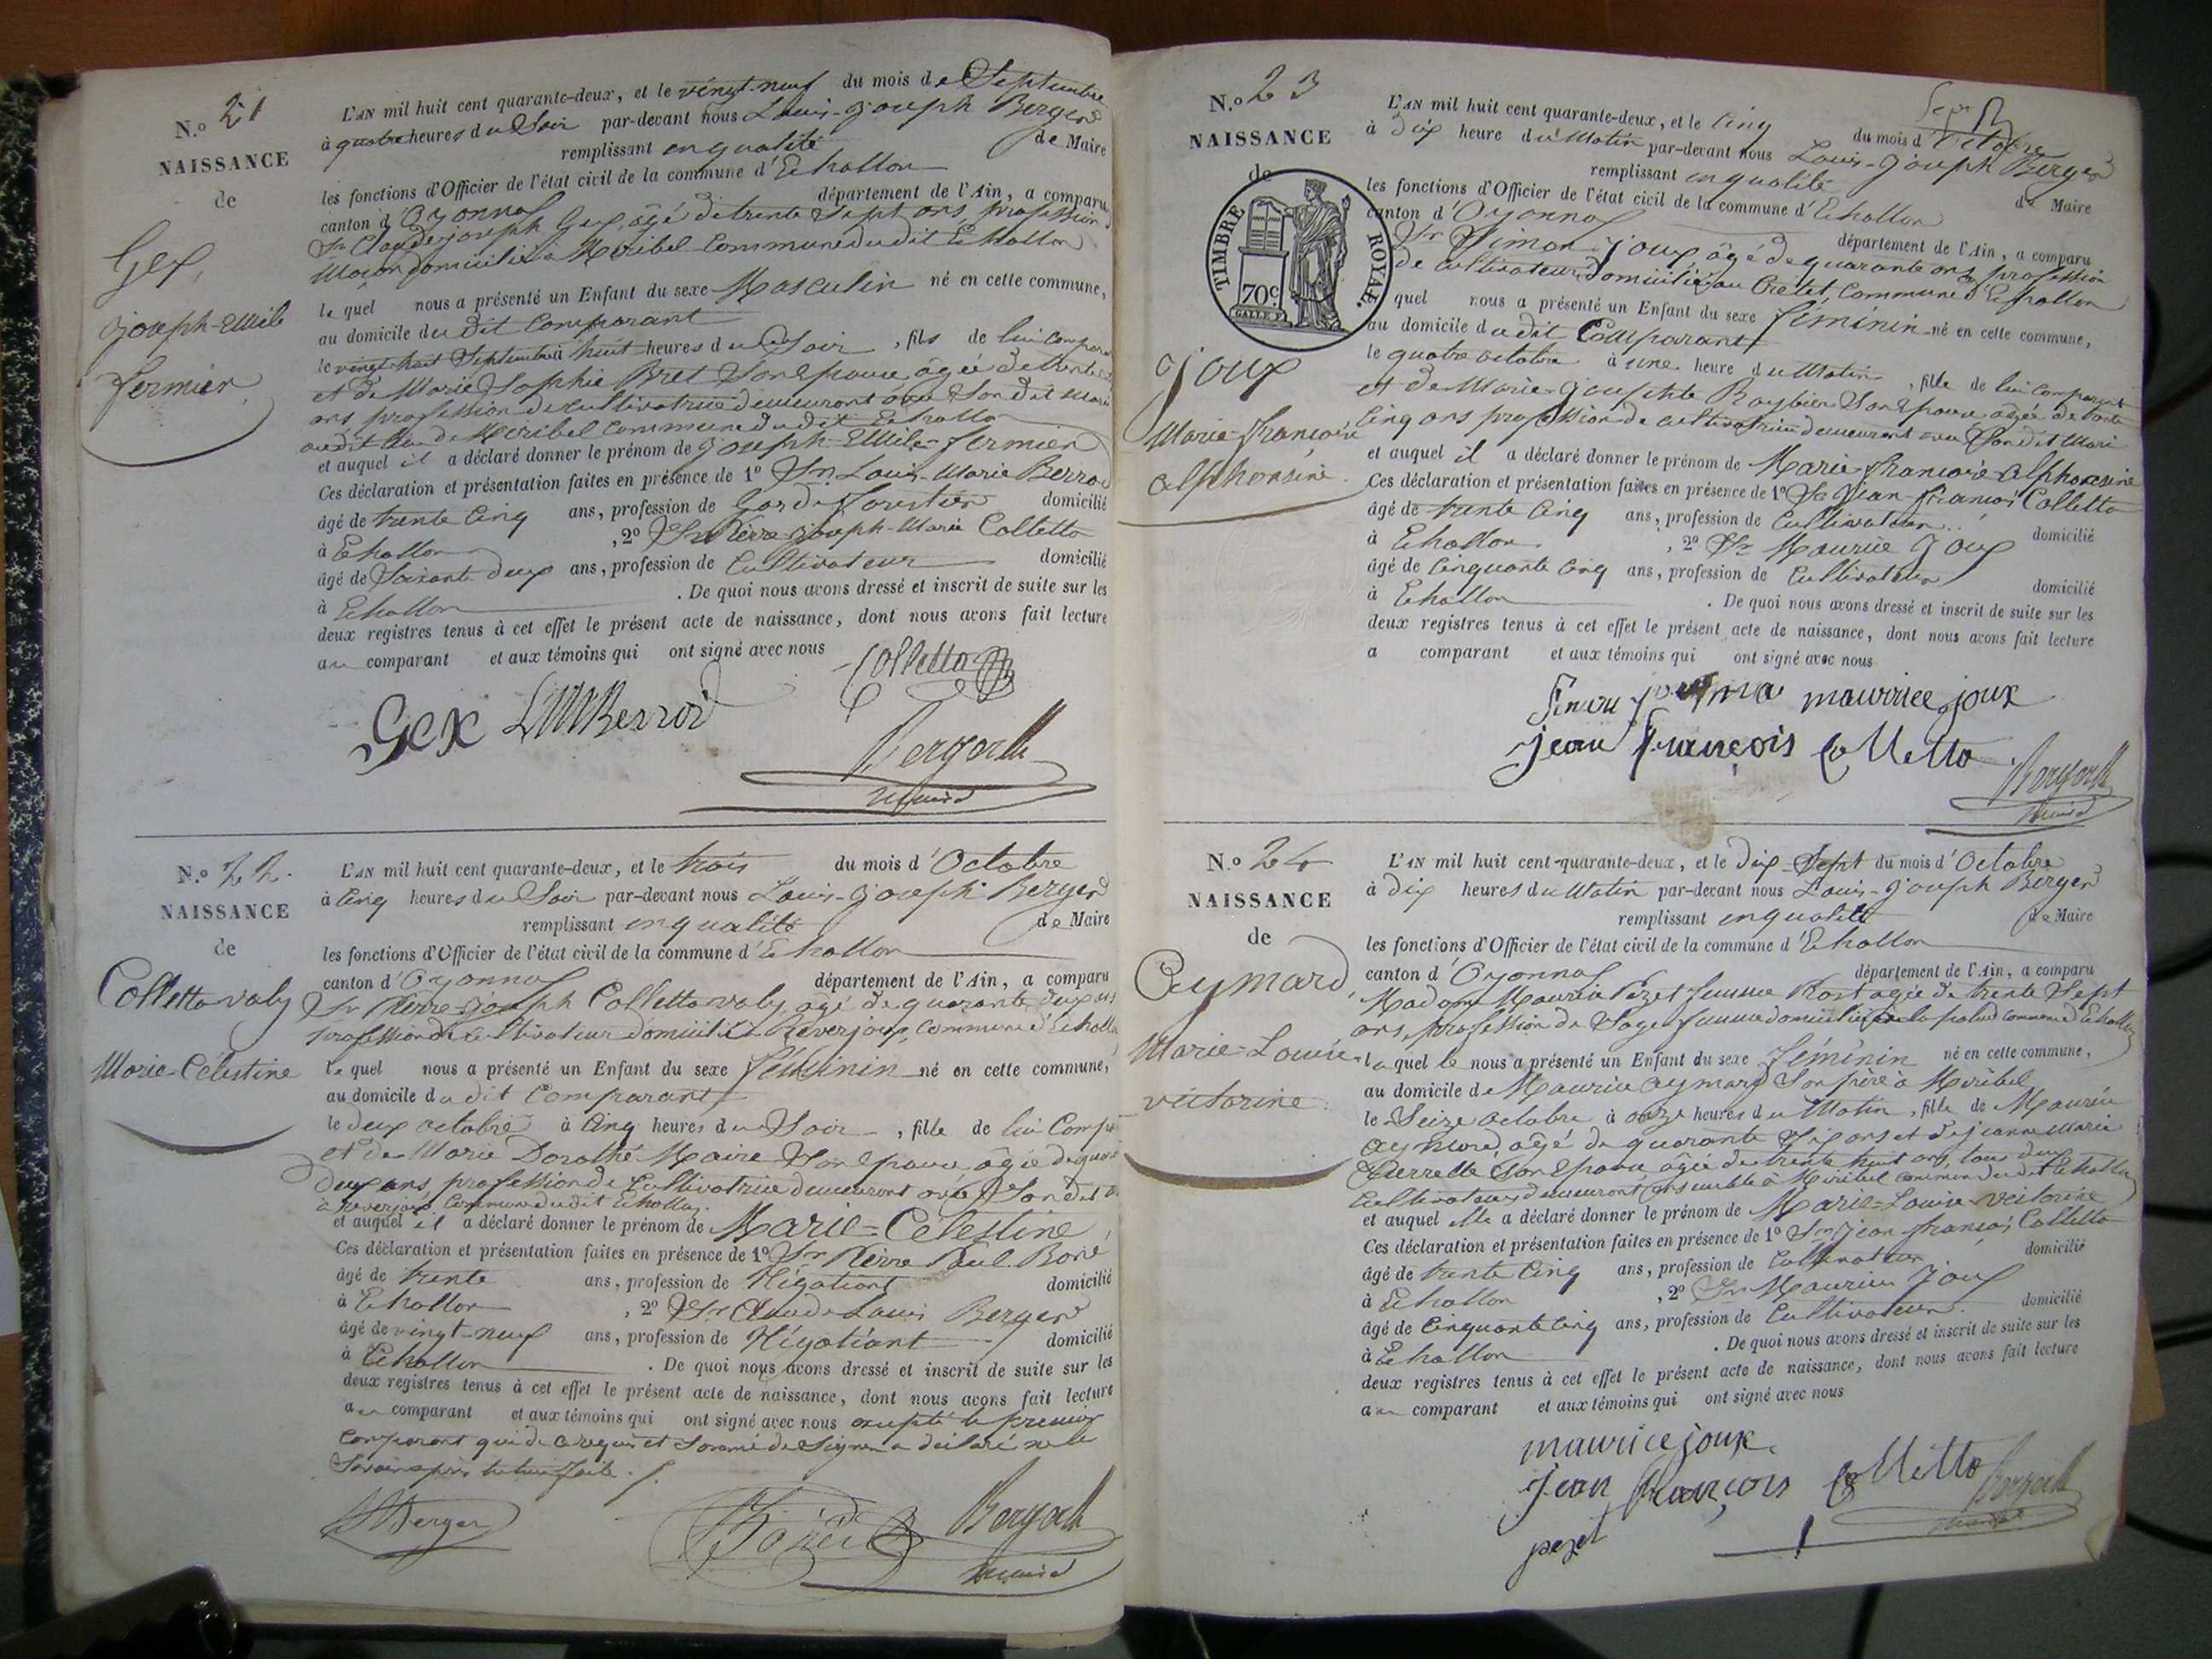 N.o 21
NAISSANCE
de
Gex,
joseph-Emile
fermier
L'AN mil huit cent quarante-deux, et le vingt-neuf du mois de Septembre
à quatre heures du Soir par-devant nous Louis-joseph Berger
remplissant en qualité de Maire
les fonctions d'Officier de l'état civil de la commune d'Echallon
canton d'Oyonnax département de l'Ain, a comparu
Sr Claude joseph Gex, âgé de trente Sept ans, profession
Maçon domicilié à Miribel Commune dudit Echallon
le quel nous a présenté un Enfant du sexe Masculin né en cette commune,
au domicile du dit Comparant
le vingt-huit Septembre à huit heures du Soir, fils de lui compar
et de Marie Sophie Bret Son Epouse âgée de trente
ans profession de cultivatrice demeurant avec Son dit Mari
audit lieu de Miribel commune dudit Echallon
et auquel il a déclaré donner le prénom de joseph-Emile-fermier
Ces déclaration et présentation faites en présence de 1o Sr. Louis-Marie Berrod
âgé de trente Cinq ans, profession de Garde forestier domicilié
à Echallon, 2o Sr Pierre-joseph-Marie Colletto
âgé de Soixante deux ans, profession de Cultivateur domicilié
à Echallon. De quoi nous avons dressé et inscrit de suite sur les
deux registres tenus à cet effet le présent acte de naissance, dont nous avons fait lecture
au comparant et aux témoins qui ont signé avec nous
Colletto
Gex LMBerrod
Berger
N.o 22.
NAISSANCE
de
Colletta-valy
Marie-Célestine
L'AN mil huit cent quarante-deux, et le trois du mois d'Octobre
à Cinq heures du Soir par-devant nous Louis-joseph Berger
remplissant en qualité de Maire
les fonctions d'Officier de l'état civil de la commune d'Echallon
canton d'Oyonnax département de l'Ain, a comparu
Sr Pierre-joseph Colletta-valy, âgé de quarante deux ans
profession de Cultivateur domicilié à Reverjoux, Commune d'Echallon
le quel nous a présenté un Enfant du sexe féminin né en cette commune,
au domicile du dit Comparant,
le deux octobre à Cinq heures du Soir, fille de lui Comp
et de Marie Dorothé Maire Son Epouse âgée de quar
deux ans, profession de Cultivatrice demeurant avec Son dit
à reverjoux Commune dudit Echallon.
et auquel il a déclaré donner le prénom de Marie-Célestine
Ces déclaration et présentation faites en présence de 1o Sr Pierre Paul Boné
âgé de trente ans, profession de Négotiant domicilié
à Echallon, 2o Sr Claude-Louis Berger
âgé de vingt-neuf ans, profession de Négotiant domicilié
à Echallon. De quoi nous avons dressé et inscrit de suite sur les
deux registres tenus à cet effet le présent acte de naissance, dont nous avons fait lecture
au comparant et aux témoins qui ont signé avec nous excepté le premier
comparant qui de ce requis et Sommé de Signer a déclaré ne le
Savoir après lecture faite.
Berger
Boné
Berger
N.o 23
NAISSANCE
de
TIMBRE ROYAL.
70c
Joux
Marie-françoise
alphonsine
L'AN mil huit cent quarante-deux, et le Cinq du mois d'Octobre
à Dix heure du Matin par-devant nous Louis-joseph Berger
remplissant en qualité de Maire
les fonctions d'Officier de l'état civil de la commune d'Echallon
canton d'Oyonnax département de l'Ain, a comparu
Sr Simon joux, âgé de quarante ans, profession
de Cultivateur, domicilié au Crétet Commune d'Echallon
quel nous a présenté un Enfant du sexe féminin né en cette commune,
au domicile du dit Comparant
le quatre octobre à une heure du Matin, fille de lui comparant
et de Marie-josephte Raybier Son Epouse âgée de trente
Cinq ans profession de cultivatrice demeurant avec Son dit Mari
et auquel il a déclaré donner le prénom de Marie françoise alphonsine
Ces déclaration et présentation faites en présence de 1o Sr jean-françois Colletto
âgé de trente Cinq ans, profession de Cultivateur domicilié
à Echallon, 2o Sr Maurice joux
âgé de Cinquante Cinq ans, profession de Cultivateur domicilié
à Echallon. De quoi nous avons dressé et inscrit de suite sur les
deux registres tenus à cet effet le présent acte de naissance, dont nous avons fait lecture
a comparant et aux témoins qui ont signé avec nous
maurice joux
jean françois Colletto
Berger
N.o 24
NAISSANCE
de
Aymard,
Marie-Louise
victorine
L'AN mil huit cent quarante-deux, et le Dix-Sept du mois d'Octobre
à Dix heures du Matin par-devant nous Louis-joseph Berger
remplissant en qualité de Maire
les fonctions d'Officier de l'état civil de la commune d'Echallon
canton d'Oyonnax département de l'Ain, a comparu
Madame Maurice Pezet femme Rost agée de trente Sept
ans, profession de Sage femme domiciliée à la palud commune d'Echallon
laquel le nous a présenté un Enfant du sexe féminin né en cette commune,
au domicile de Maurice aymard Son père à Miribel
le Seize octobre à onze heures du Matin, fille de Maurice
aymard, âgé de quarante Six ans et de jeanne Marie
Perrette Son Epouse âgée de trente huit ans, tous deux
Cultivateurs demeurant ensemble à Miribel commune dudit Echallon
et auquel elle a déclaré donner le prénom de Marie-Louise-victorine
Ces déclaration et présentation faites en présence de 1o Sr jean françois Colletto
âgé de trente Cinq ans, profession de Cultivateur domicilié
à Echallon, 2o Sr Maurice joux
âgé de Cinquante Cinq ans, profession de Cultivateur domicilié
à Echallon. De quoi nous avons dressé et inscrit de suite sur les
deux registres tenus à cet effet le présent acte de naissance, dont nous avons fait lecture
au comparant et aux témoins qui ont signé avec nous
maurice joux
jean françois Colletto
Berger
pezet